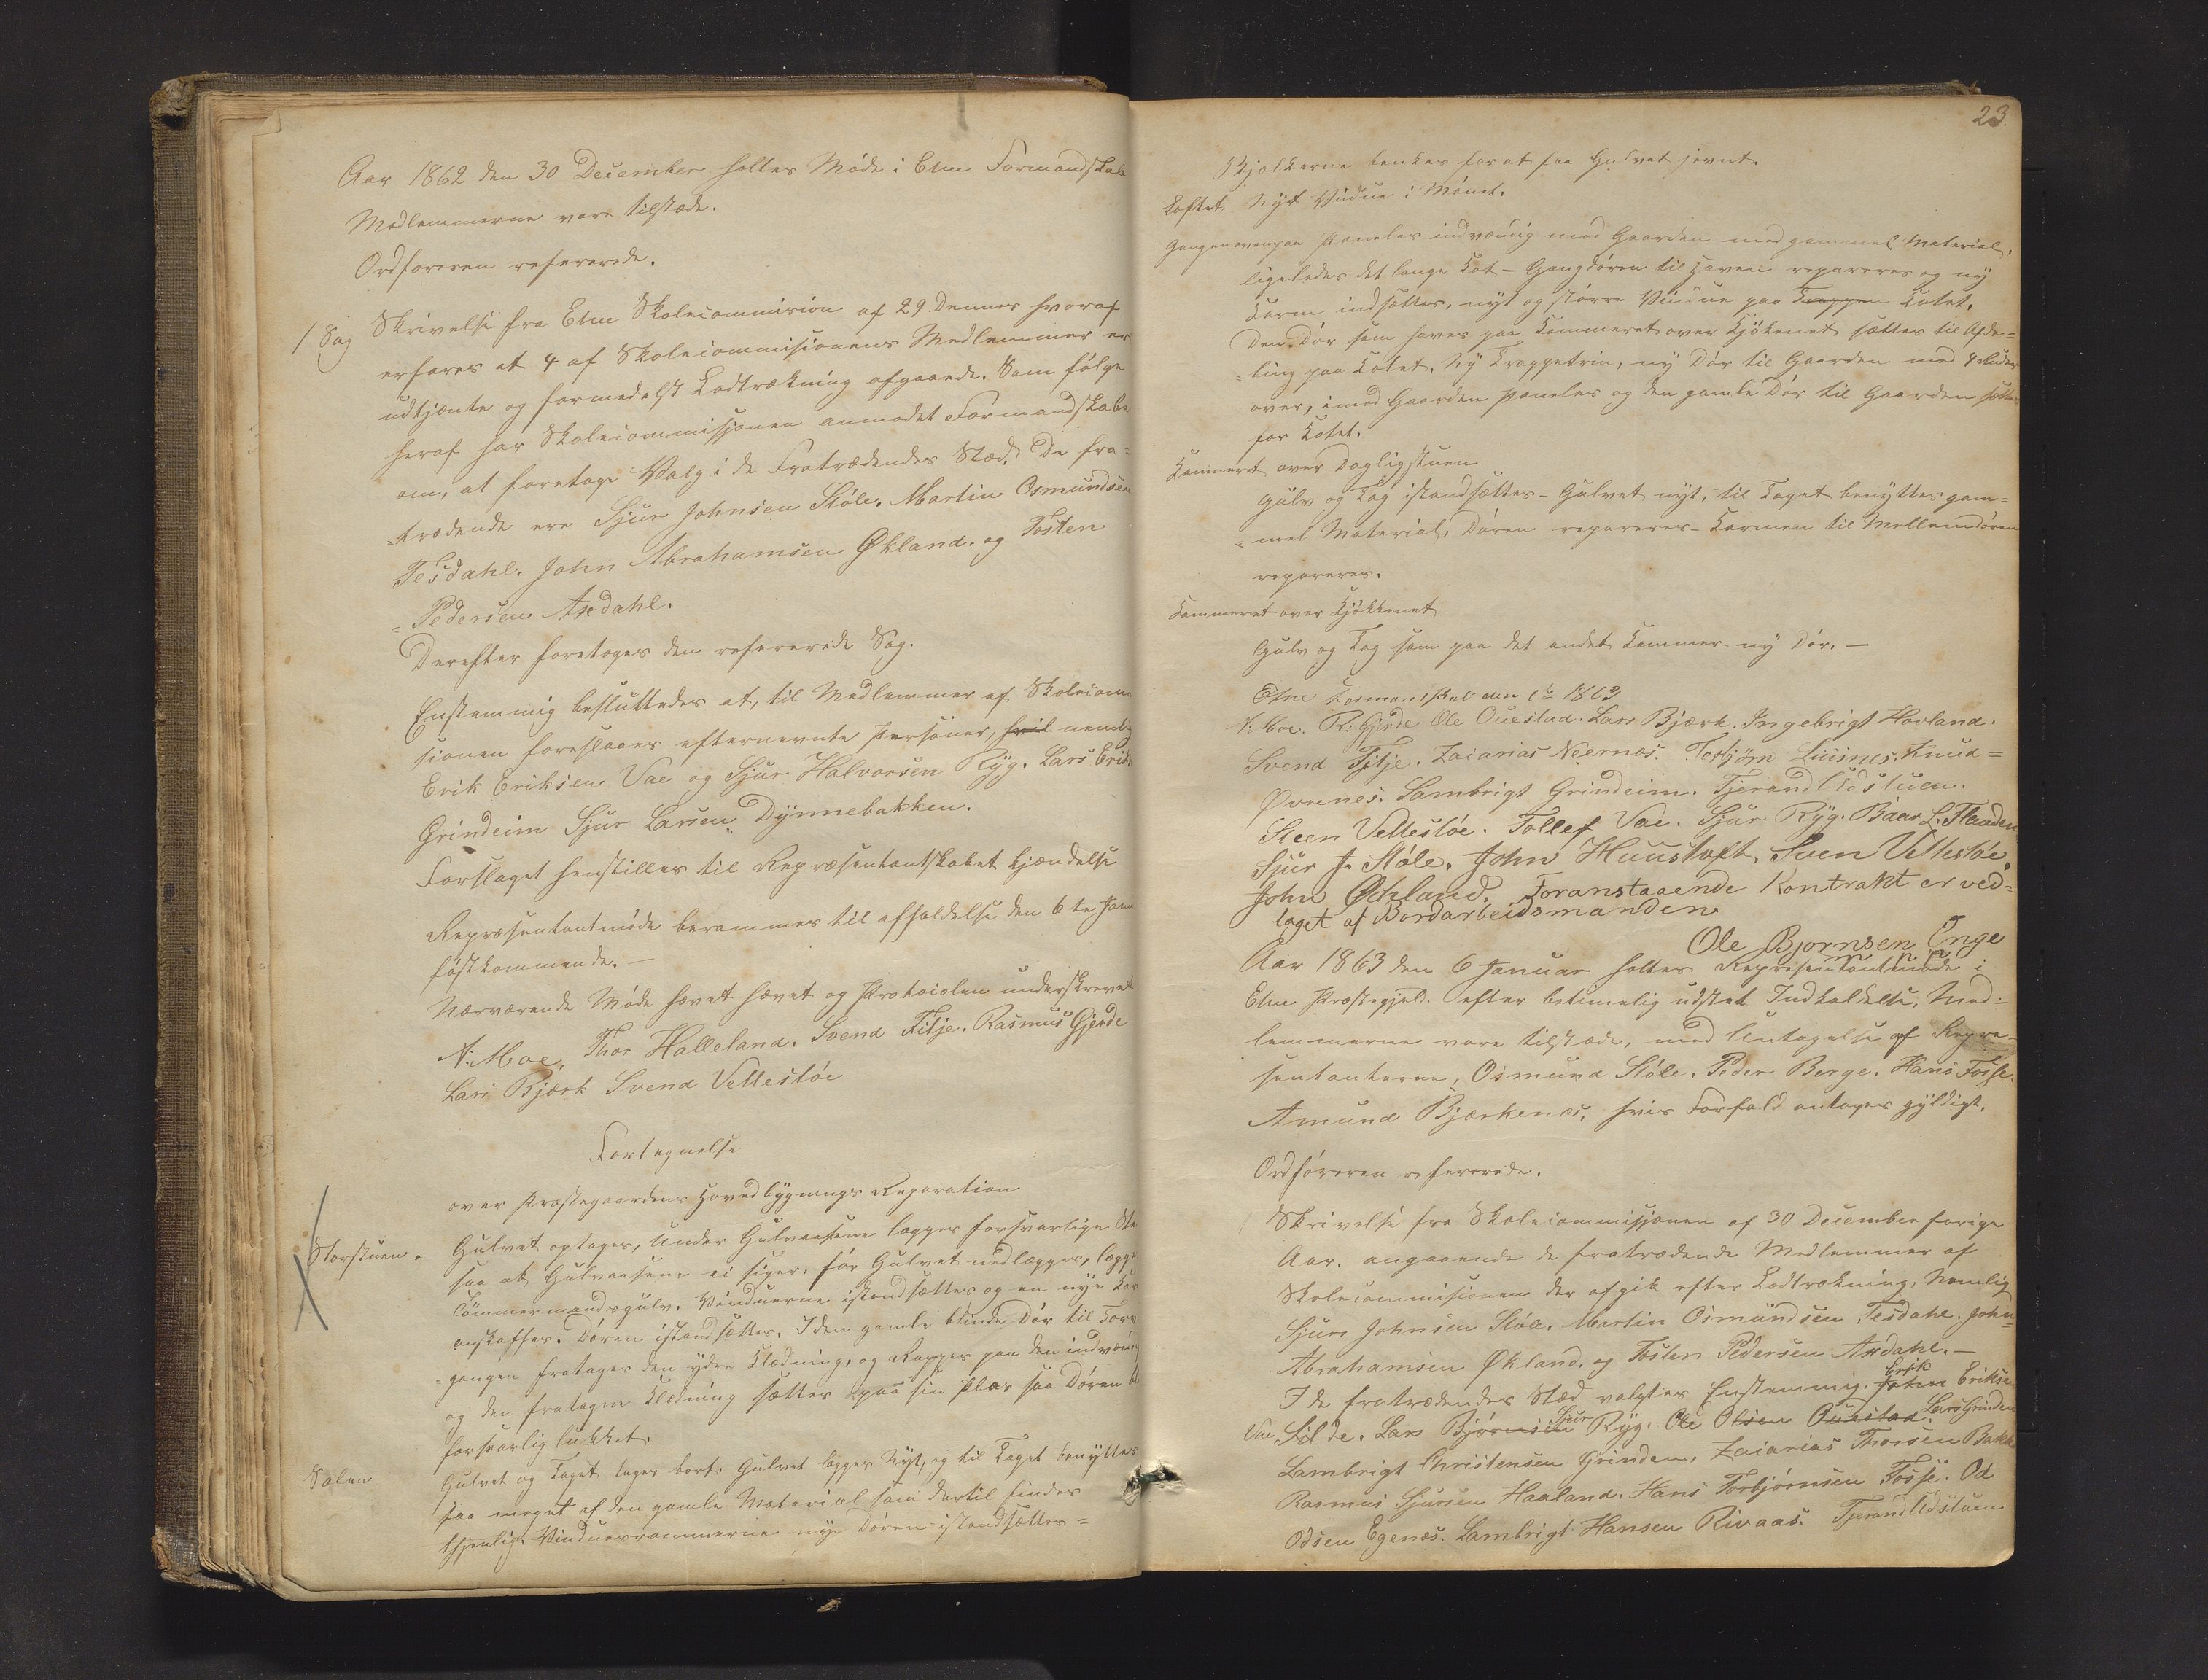 Aar 1862 den 30 December holtes Möde i Etne Formandskab
Medlemmerne vare tilstæde.
Ordföreren refererede.
1 Sag Skrivelse fra Etne Skolecommision af 29. Dennes hvoraf
erfares at 4 af Skolecommisionens Medlemmer er
udtjænte og formedelst Lodtrækning afgaaede. Som fölge
heraf har Skolecommissjonen anmodet Formandskabe
om, at foretage Valg i de Fratrædendes Stæd. De fra-
trædende ere Sjur Johnsen Stöle. Martin Osmundsen
Tesdahl. John Abrahamsen Økland. og Tosten
= Pedersen Axdahl.
Derefter foretoges den refererede Sag.
Enstemmig besluttedes at, til Medlemmer af Skolecom
sionen foreslaaes efternevnte Personer, hvil nemlig
Erik Eriksen Vae og Sjur Halvorsen Ryg. Lars Erik
Grindeim Sjur Larsen Dynnebakken.
Forslaget henstilles til Repræsentantskabet kjændelse
Repræsentantmöde berammes til afholdelse den 6te Janu
föstkommende. —
Nærværende Möde hævet hævet og Protocolen underskrevet
N: Moe, Thor Halleland. Svend Fitje. Rasmus Gjerde
Lars Bjærk Svend Vellestöe
Fortegnelse
over Præstegaardens Hovedbygnings Reparation
Storstuen. Gulvet optages, Under Gulvaasene lægges forsvarlige Ste
saa at Gulvaasene ei siger, för Gulvet nedlægges, lægge
Tömmermandsgulv. Vinduerne istandsættes og en nye Kar
anskaffes. Dören istandsættes. I den gamle blinde Dör til For
= gangen fratages den ydre Klædning, og Rappes paa den indvendi
og den fratagne Klædning sættes paa sin Plas saa Dören bl
forsvarlig lukket.
Salen Gulvet og Taget tages bort. Gulvet lægges Nyt, og til Taget benyttes
saa meget af den gamle Material som dertil findes
thjenlig. Vinduesrammerne nye Dören istandsættes =
23.
Bjelkerne benkes for at faa Gulvet jevnt.
Loftet Nyt Vindue i Mönet.
Gangen ovenpaa Paneles indvændig mod Gaarden med gammel Material,
ligeledes det lange Kot – Gangdören til Haven repareres og ny
Karm indsættes, nyt og större Vindue paa Trappen Kotet.
Den Dör som haves paa Kammeret over Kjökenet sættes til Afde=
=ling paa Kotet. Ny Trappetrin, ny Dör til Gaarden med 4 Ruder
over, imod Gaarden paneles og den gamle Dör til Gaarden sættes
for Kotet.
Kammeret over Dagligstuen
Gulv og Tag istandsættes – Gulvet nyt, til Taget benyttes gam=
=mel Material, Dören repareres – Karmen til Mellemdören
repareres.
Kammeret over Kjökkenet
Gulv og Tag som paa det andet Kammer – ny Dör. —
Etne Formandskab den 6te 1863
N: Moe. R: Gjerde Ole Ouestad. Lars Bjærk. Ingebrigt Havland.
Svend Fitje. Zacarias Neernæs. Torbjörn Liusnes. Knud=
Øvrenes. Lambrigt Grindeim. Tjerand Udstuen.
Steen Vellestöe. Tollef Vae. Sjur Ryg. Baar L. Flaaden
Sjur J. Stöle. John Huustoft. Sven Vellestöe
John Økland. Foranstaaende Kontrakt er ved=
taget af Bordarbeidsmanden
Ole Bjornsen Enge
Aar 1863 den 6 Januar holtes Repræsentantmöde i
Etne Præstegjeld. efter betimelig udstet Indkaldelse. Med=
lemmerne vare tilstæde, med Untagelse af Repre-
sentanterne, Osmund Stöle. Peder Berge. Hans Fosse.
Amund Bjærkenæs, hvis Forfald antages gyldigt.
Ordföreren refererede.
1 Skrivelse fra Skolecommissjonen af 30 December forige
Aar. angaaende de fratrædende Medlemmer af
Skolecommisionen der afgik efter Lodtrækning, Nemlig
Sjur Johnsen Stöle. Martin Osmundsen Tesdahl. John=
Abrahamsen Økland. og Tosten Pedersen Axdahl. —
I de fratrædendes Stæd valgtes Enstemmig. Erik Eriksen
Vae, Lars Bjørnsen Sjur Ryg. Ole Olsen Ouestad. Lars Grinden
Lambrigt Christensen Grinden, Zacarias Thorsen Bakk
Rasmus Sjursen Haaland. Hans Torbjörnsen Fosse. Od
Odsen Egenæs. Lambrigt Hansen Rivaas. Tjerand Udstuen